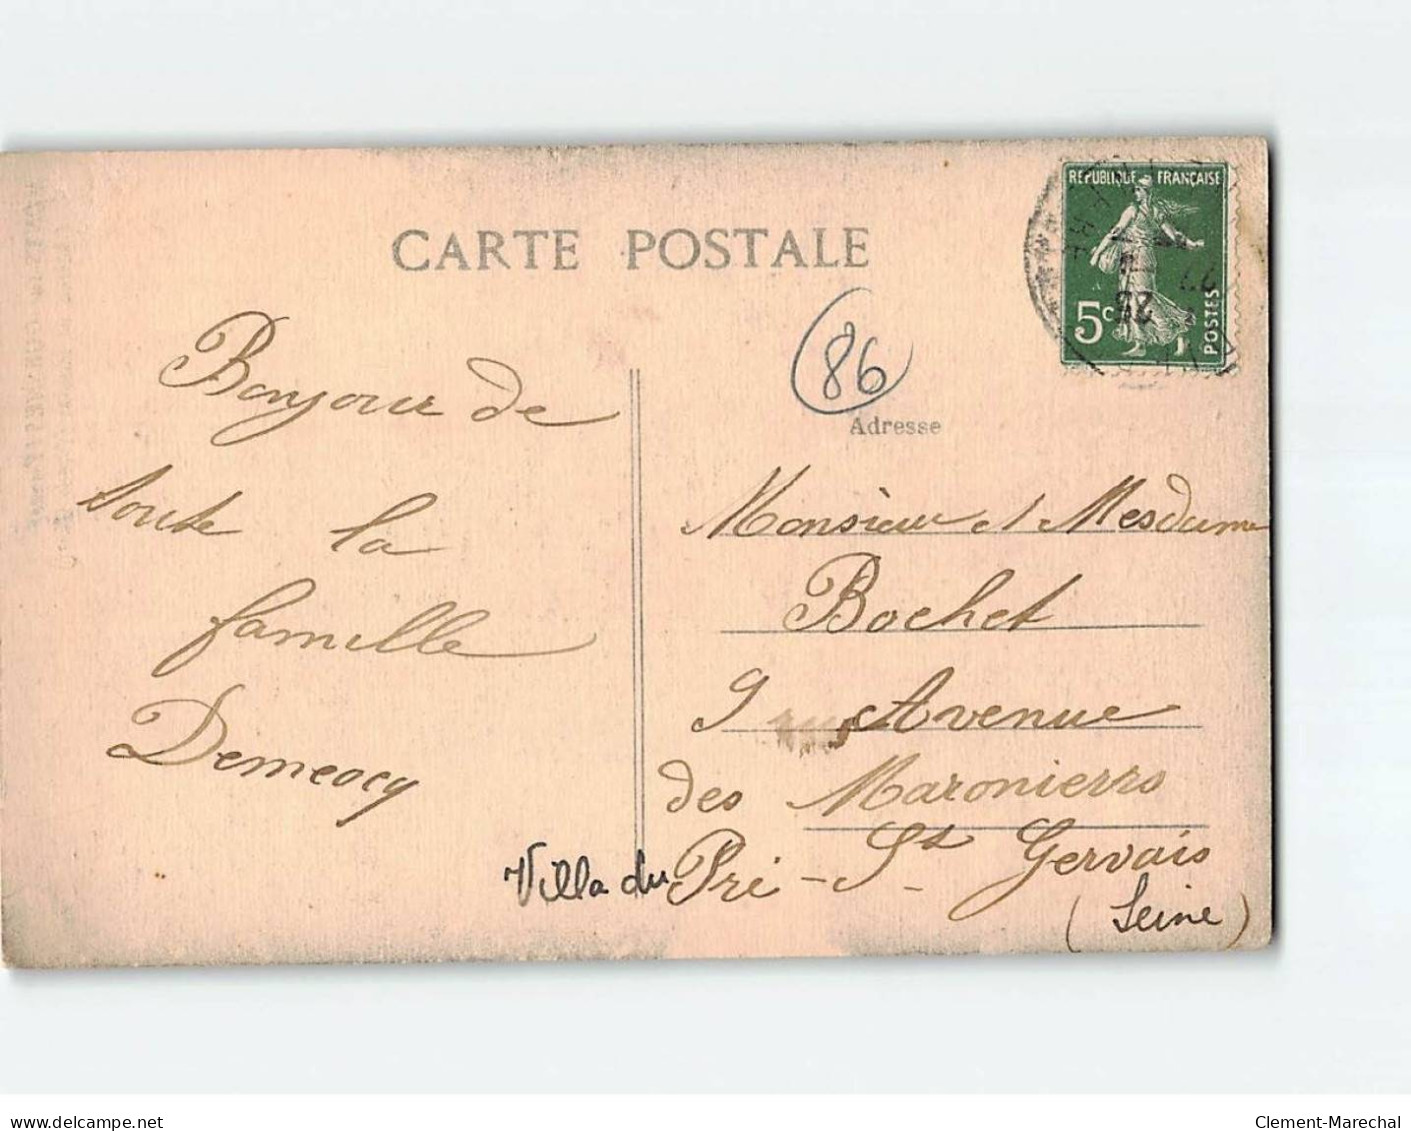 CARTE POSTALE
REPUBLIQUE FRANÇAISE
5c
POSTES
28
86
Adresse
Bonjour de
toute la
famille
Demeocq
Monsieur et Mesdame
Bochet
9 Avenue
des Maronierrs
Villa du Pré-St Gervais
(Seine)
www.delcampe.net
Clement-Marechal